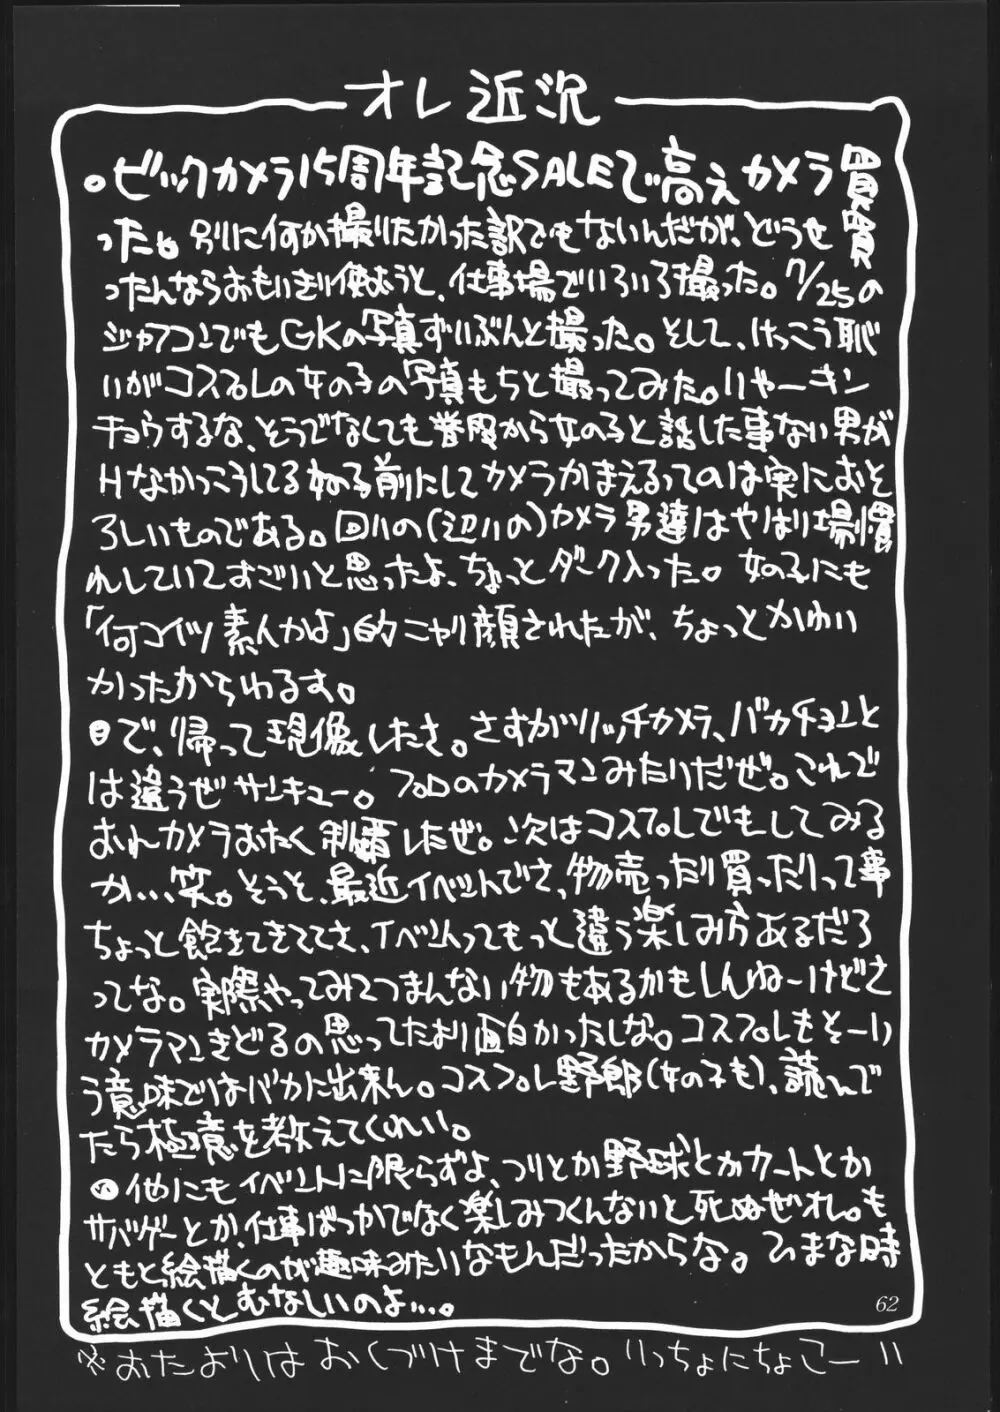 オレ近況
。ビックカメラ15周年記念SALEで高ぇカメラ買
った。別に何か撮りたかった訳でもないんだが、どうせ買
ったんならおもいきり使おうと、仕事場でいろいろ撮った。7/25の
ジャフコンでもGKの写真ずいぶんと撮った。そして、けっこう恥
いがコスプレの女の子の写真もちと撮ってみた。いやーキン
チョウするな、そうでなくても普段から女の子と話した事ない男が
Hなかっこうしてるねーる前にしてカメラかまえるってのは実におそ
ろしいものである。回りの(辺りの)カメラ男達はやはり場慣
れしていてすごいと思ったよ、ちょっとダーク入った。女の子にも
「何コイツ素人かよ」的ニヤリ顔されたが、ちょっとかゆい
かったからわるす。
で、帰って現像したさ。さすがリッチカメラ、バカチョンと
は違うぜサンキュー。プロのカメラマンみたいだぜ。これで
おれカメラおたく制覇したぜ。次はコスプレでもしてみる
か…笑。そうと、最近イベントでさ、物売ったり買ったりって事
ちょっと飽きてきててさ、イベントってもっと違う楽しみ方あるだろ
ってな。実際やってみてつまんない物もあるかもしんねーけどさ
カメラマンきどるの思ってたより面白かったしな。コスプレもそーい
う意味ではバカに出来ん。コスプレ野郎(女の子も)、読んで
たら極意を教えてくれい。
他にもイベントに限らずよ、つりとか野球とかカートとか
サバゲーとか、仕事ばっかでなく楽しみつくんないと死ぬぜオレ。も
ともと絵描くのが趣味みたいなもんだったからな。ひまな時
絵描くとむなしいのよ…。
62
※おたよりはおくづけまでな。いっちょにちょこー!!